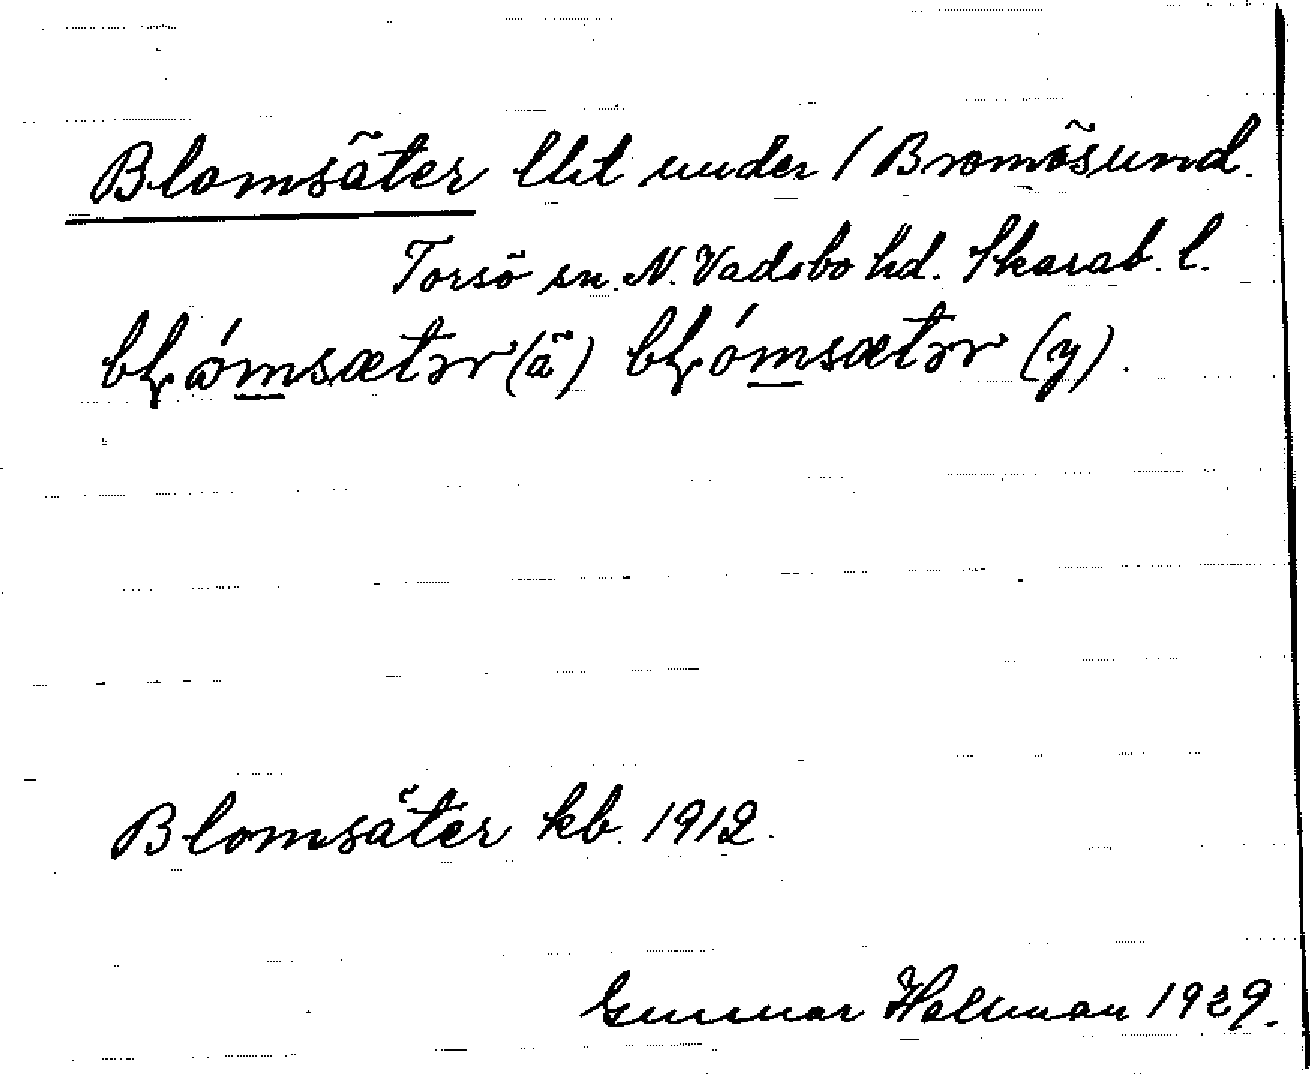 Blomsäter lht under 1 Bromösund.
Torsö sn. N. Vadsbo hd. Skarab. l.
bḷómsætər (ä) bḷómsætər (y).
Blomsäter kb. 1912.
Gunnar Hallman 1929.